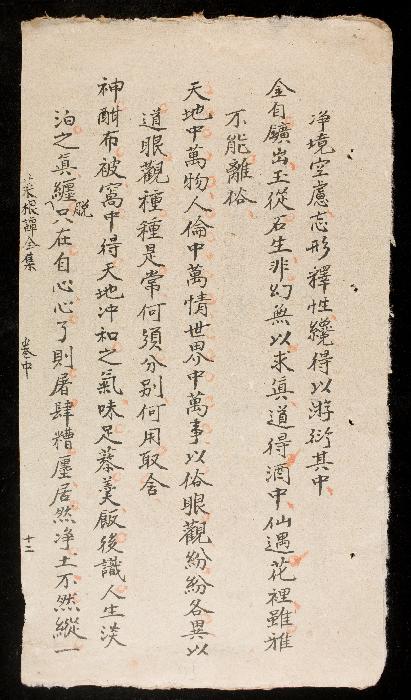 净境空慮忘形釋性纔得以游衍其中
金自鑛出玉從石生非幻無以求眞道得酒中仙遇花裡雖雅
不能離俗
天地中萬物人倫中萬情世界中萬事以俗眼觀紛紛各異以
道眼觀種種是常何須分别何用取舍
神酣布被窩中得天地冲和之氣味足藜羹飯後識人生淡
泊之眞纏脱只在自心心了則屠肆糟廛居然净土不然縱一
菜根譚全集 卷中 十二